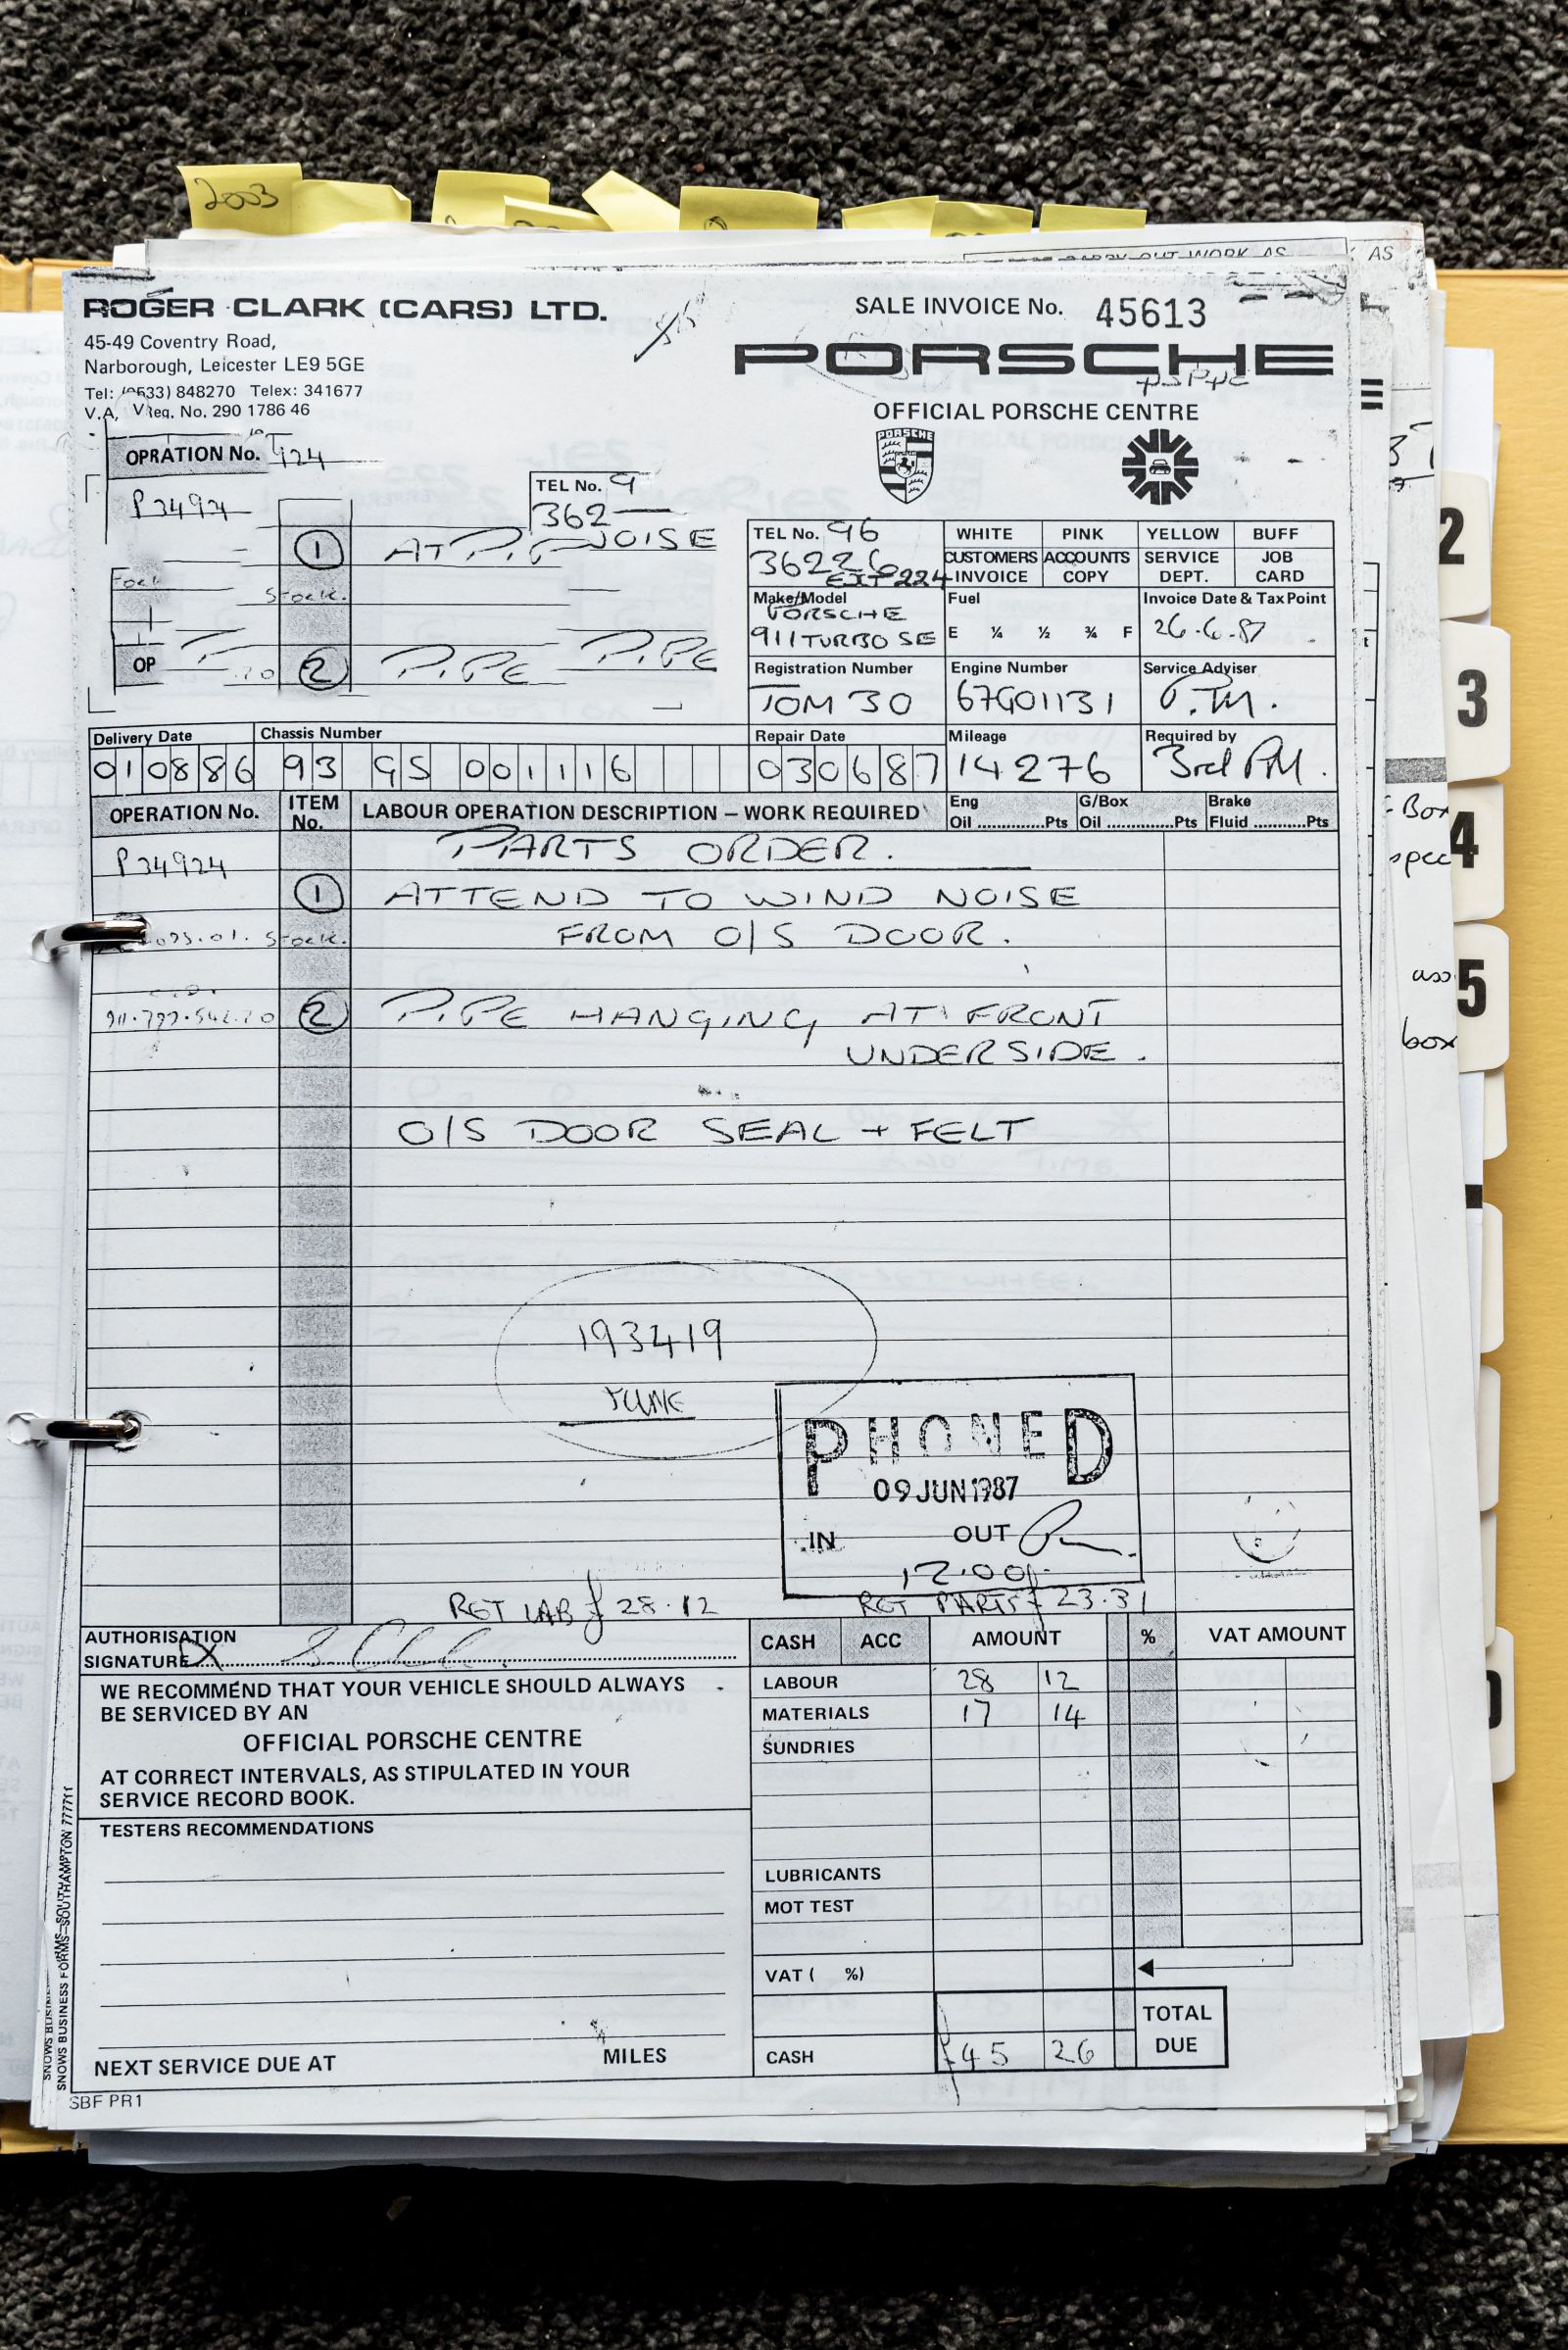 2003
CARRY OUT WORK AS
AS
ROGER CLARK (CARS) LTD.
45-49 Coventry Road,
Narborough, Leicester LE9 5GE
Tel: (0533) 848270 Telex: 341677
V.A, Reg. No. 290 1786 46
SALE INVOICE No. 45613
PORSCHE
OFFICIAL PORSCHE CENTRE
PORSCHE
OPRATION No. T924
P3492
TEL No. 9
362
1 AT P.PE NOISE
Stock.
OP 70 2 P.PE P.PE
TEL No. 96
36226
EXT 224
WHITE PINK YELLOW BUFF
CUSTOMERS INVOICE ACCOUNTS COPY SERVICE DEPT. JOB CARD
Make/Model
PORSCHE
911 TURBO SE
Fuel
E ¼ ½ ¾ F
Invoice Date & Tax Point
26.6.87
Registration Number
TOM 30
Engine Number
67G01131
Service Adviser
Delivery Date
010886
Chassis Number
93 GS 001116
Repair Date
030687
Mileage
14276
Required by
3rd PM.
OPERATION No. ITEM No. LABOUR OPERATION DESCRIPTION – WORK REQUIRED
Eng Oil .............Pts G/Box Oil ............Pts Brake Fluid ...........Pts
P34924 PARTS ORDER.
1 ATTEND TO WIND NOISE
Stock. FROM O/S DOOR.
2 P.PE HANGING AT FRONT
UNDERSIDE.
O/S DOOR SEAL + FELT
193419
JUNE
PHONED
09 JUN 1987
IN OUT
12.00
RGT LAB £28.12 RGT PARTS £23.31
AUTHORISATION
SIGNATURE X
WE RECOMMEND THAT YOUR VEHICLE SHOULD ALWAYS
BE SERVICED BY AN
OFFICIAL PORSCHE CENTRE
AT CORRECT INTERVALS, AS STIPULATED IN YOUR
SERVICE RECORD BOOK.
TESTERS RECOMMENDATIONS
NEXT SERVICE DUE AT MILES
CASH ACC AMOUNT % VAT AMOUNT
LABOUR 28 12
MATERIALS 17 14
SUNDRIES
LUBRICANTS
MOT TEST
VAT ( %)
TOTAL
DUE
CASH £45 26
SBF PR1
SNOWS BUSINESS FORMS–SOUTHAMPTON 777711
2
3
4
5
Box
spec
ass
box